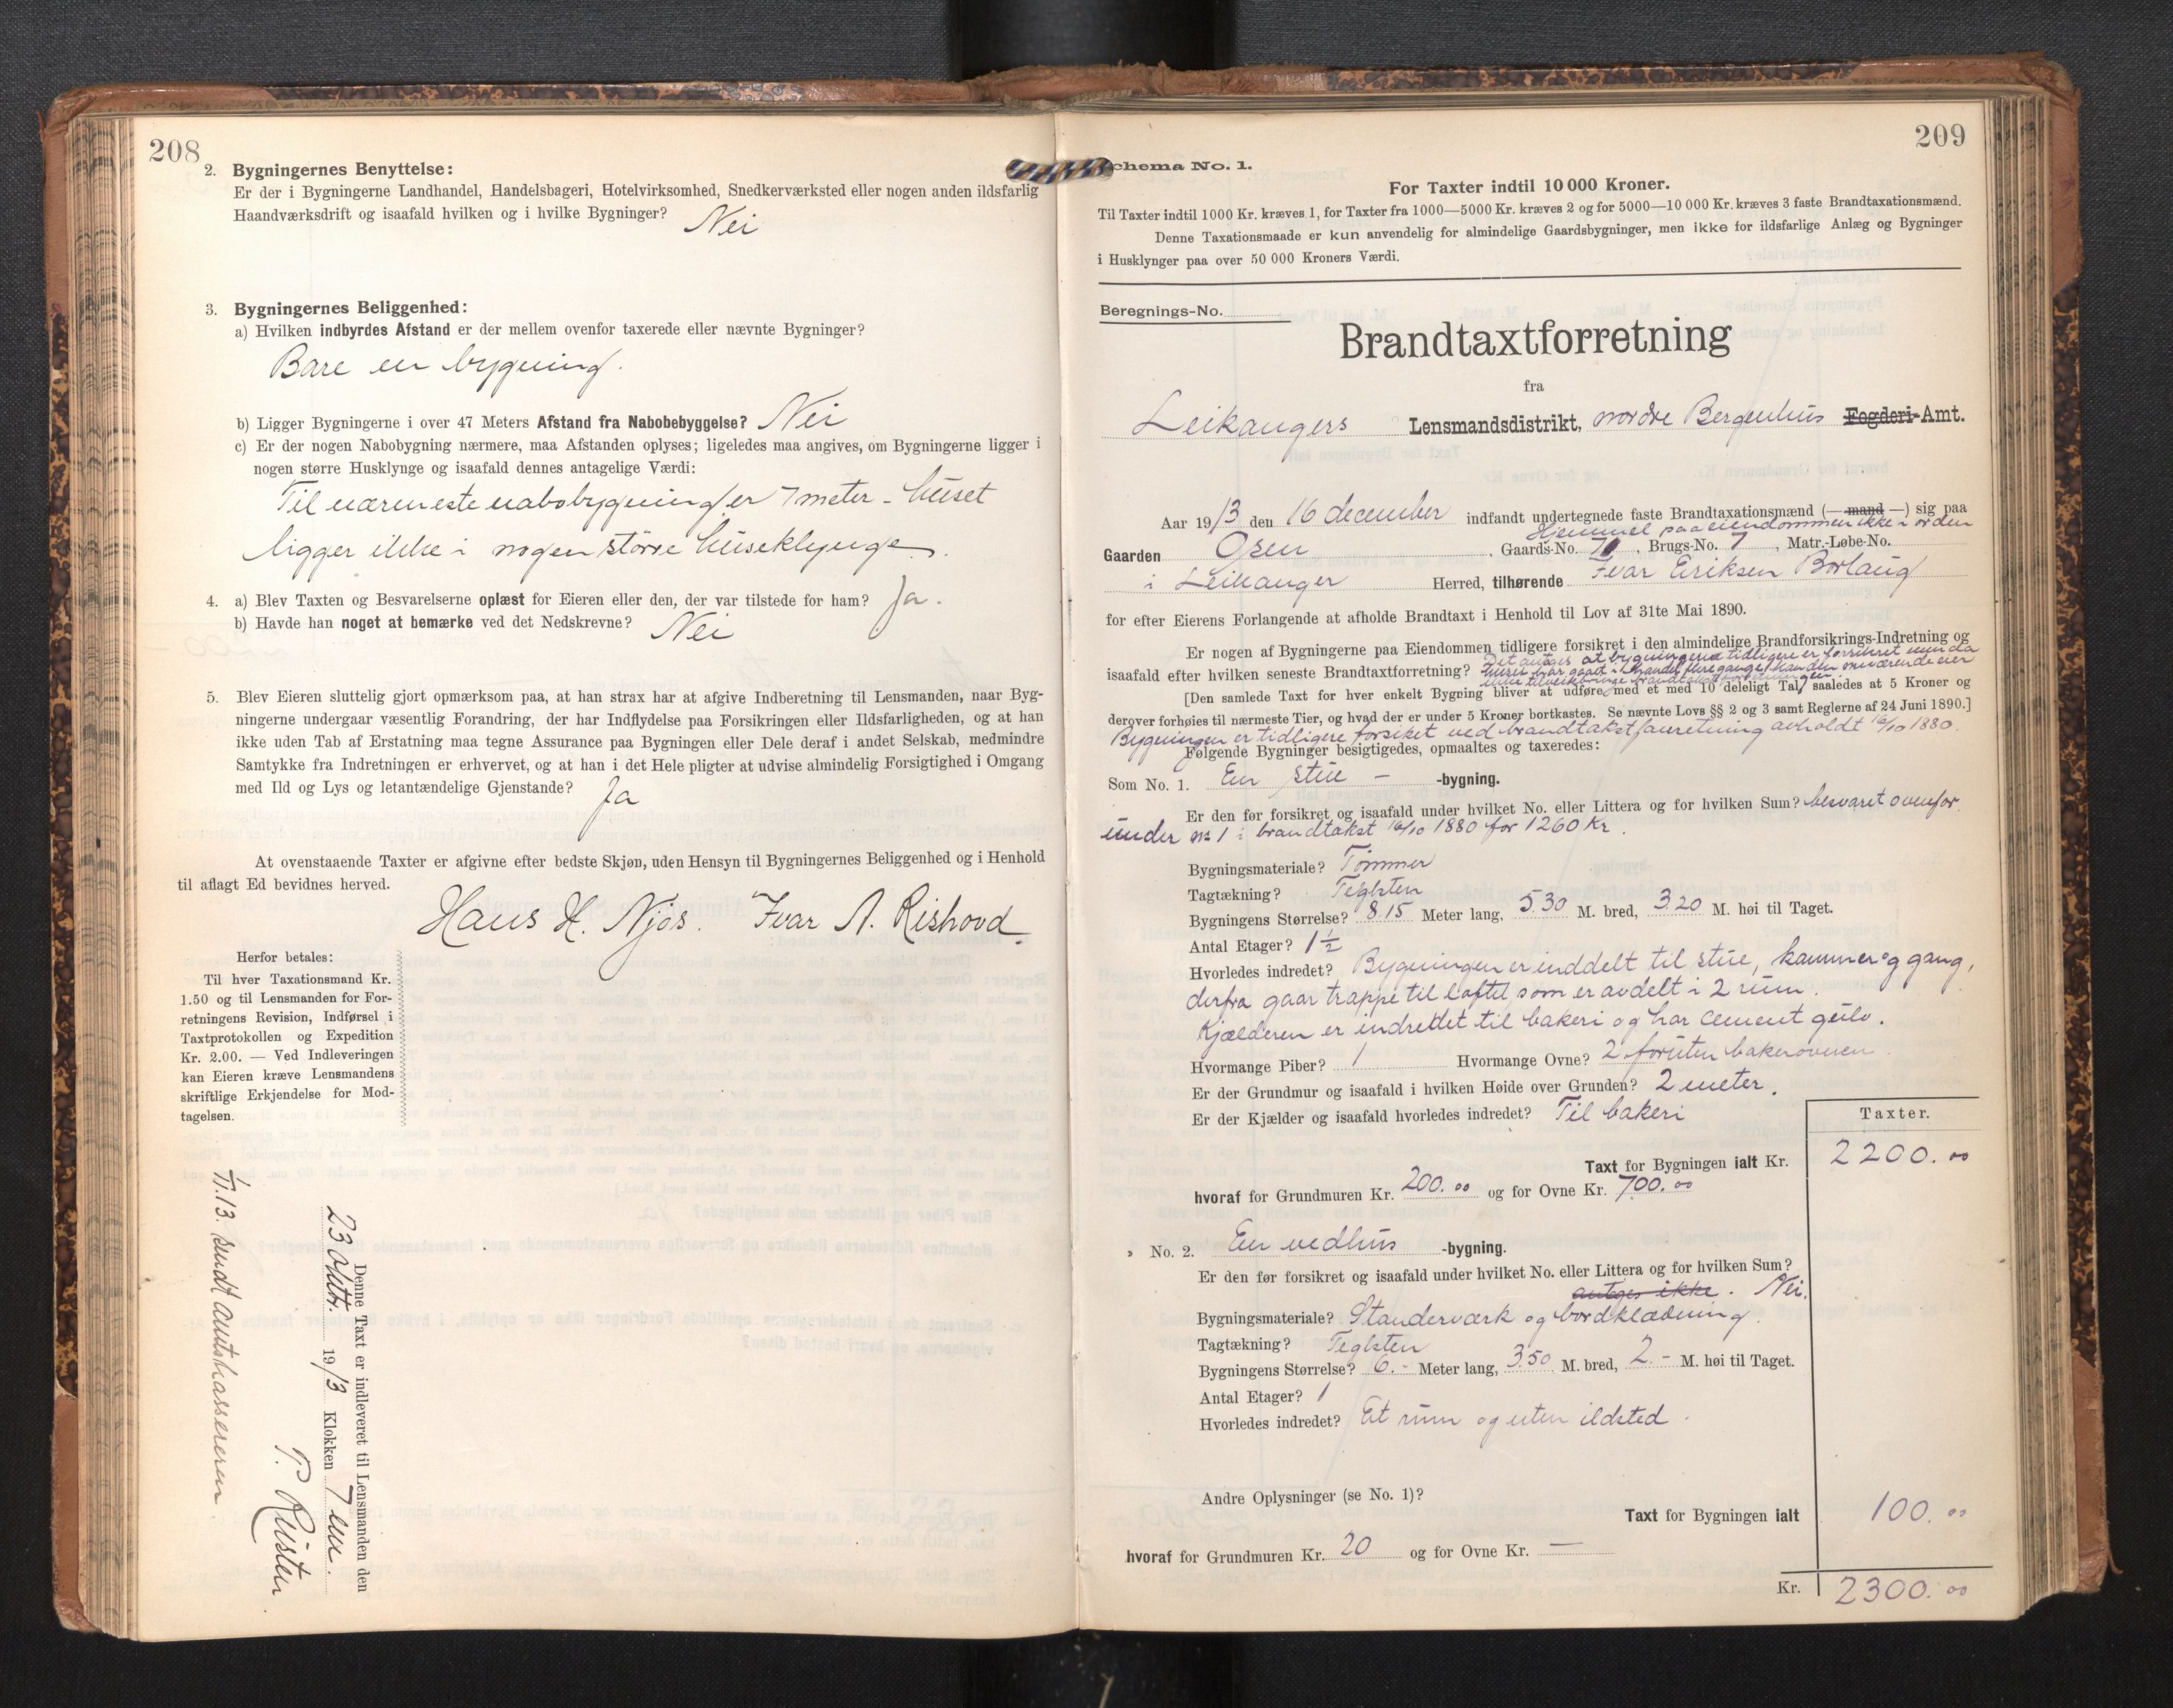 208
2. Bygningernes Benyttelse:
Er der i Bygningerne Landhandel, Handelsbageri, Hotelvirksomhed, Snedkerværksted eller nogen anden ildsfarlig
Haandværksdrift og isaafald hvilken og i hvilke Bygninger? Nei
3. Bygningernes Beliggenhed:
a) Hvilken indbyrdes Afstand er der mellem ovenfor taxerede eller nævnte Bygninger?
Bare en bygning.
b) Ligger Bygningerne i over 47 Meters Afstand fra Nabobebyggelse? Nei
c) Er der nogen Nabobygning nærmere, maa Afstanden oplyses; ligeledes maa angives, om Bygningerne ligger i
nogen større Husklynge og isaafald dennes antagelige Værdi:
Til nærmeste nabobygning er 7 meter - huset
ligger ikke i nogen større huseklynge.
4. a) Blev Taxten og Besvarelserne oplæst for Eieren eller den, der var tilstede for ham? Ja.
b) Havde han noget at bemærke ved det Nedskrevne? Nei
5. Blev Eieren sluttelig gjort opmærksom paa, at han strax har at afgive Indberetning til Lensmanden, naar Byg-
ningerne undergaar væsentlig Forandring, der har Indflydelse paa Forsikringen eller Ildsfarligheden, og at han
ikke uden Tab af Erstatning maa tegne Assurance paa Bygningen eller Dele deraf i andet Selskab, medmindre
Samtykke fra Indretningen er erhvervet, og at han i det Hele pligter at udvise almindelig Forsigtighed i Omgang
med Ild og Lys og letantændelige Gjenstande? Ja
At ovenstaaende Taxter er afgivne efter bedste Skjøn, uden Hensyn til Bygningernes Beliggenhed og i Henhold
til aflagt Ed bevidnes herved.
Hans H. Njøs. Ivar A. Rishovd.
Herfor betales:
Til hver Taxationsmand Kr.
1.50 og til Lensmanden for For-
retningens Revision, Indførsel i
Taxtprotokollen og Expedition
Kr. 2.00. — Ved Indleveringen
kan Eieren kræve Lensmandens
skriftlige Erkjendelse for Mod-
tagelsen.
Denne Taxt er indleveret til Lensmanden den
23 oktbr. 1913 Klokken 7 em.
sendt amtskassereren
209
Schema No. 1.
For Taxter indtil 10 000 Kroner.
Til Taxter indtil 1000 Kr. kræves 1, for Taxter fra 1000—5000 Kr. kræves 2 og for 5000—10 000 Kr. kræves 3 faste Brandtaxationsmænd.
Denne Taxationsmaade er kun anvendelig for almindelige Gaardsbygninger, men ikke for ildsfarlige Anlæg og Bygninger
i Husklynger paa over 50 000 Kroners Værdi.
Beregnings-No.
Brandtaxtforretning
fra
Leikangers Lensmandsdistrikt, nordre Bergenhus Fogderi-Amt.
Aar 1913 den 16 december indfandt undertegnede faste Brandtaxationsmænd (—mand —) sig paa
Hjemmel paa eiendommen ikke i orden
Gaarden Osen, Gaards-No. 7, Brugs-No. 7, Matr.-Løbe-No.
i Leikanger Herred, tilhørende Ivar Eriksen Borlaug
for efter Eierens Forlangende at afholde Brandtaxt i Henhold til Lov af 31te Mai 1890.
Er nogen af Bygningerne paa Eiendommen tidligere forsikret i den almindelige Brandforsikrings-Indretning og
isaafald efter hvilken seneste Brandtaxtforretning? Det antages at bygningene tidligere er forsikret men da
huset har gaaet i handel flere ganger kan den nuværende eier
ikke tilveiebringe brandtakstforretningen.
[Den samlede Taxt for hver enkelt Bygning bliver at udføre med et med 10 deleligt Tal, saaledes at 5 Kroner og
derover forhøies til nærmeste Tier, og hvad der er under 5 Kroner bortkastes. Se nævnte Lovs §§ 2 og 3 samt Reglerne af 24 Juni 1890.]
Bygningen er tidligere forsikret ved brandtakstforretning avholdt 16/10 1880.
Følgende Bygninger besigtigedes, opmaaltes og taxeredes:
Som No. 1. En stue - -bygning.
Er den før forsikret og isaafald under hvilket No. eller Littera og for hvilken Sum? besvaret ovenfor
under № 1 i brandtakst 16/10 1880 for 1260 Kr.
Bygningsmateriale? Tømmer
Tagtækning? Teglsten
Bygningens Størrelse? 8.15 Meter lang, 5.30 M. bred, 3.20 M. høi til Taget.
Antal Etager? 1½
Hvorledes indredet? Bygningen er inddelt til stue, kammer og gang,
derfra gaar trappe til loftet som er avdelt i 2 rum.
Kjælderen er indredet til bakeri og har cement gulv.
Hvormange Piber? 1 Hvormange Ovne? 2 foruten bakerovnen.
Er der Grundmur og isaafald i hvilken Høide over Grunden? 2 meter.
Er der Kjælder og isaafald hvorledes indredet? Til bakeri
Taxter.
Taxt for Bygningen ialt Kr. 2200.00
hvoraf for Grundmuren Kr. 200.00 og for Ovne Kr. 700.00
» No. 2. En vedhus -bygning.
Er den før forsikret og isaafald under hvilket No. eller Littera og for hvilken Sum?
antages ikke. Nei.
Bygningsmateriale? Standerværk og bordklædning.
Tagtækning? Teglsten
Bygningens Størrelse? 6.- Meter lang, 3.50 M. bred, 2.- M. høi til Taget.
Antal Etager? 1
Hvorledes indredet? Et rum og uten ildsted.
Andre Oplysninger (se No. 1)?
Taxt for Bygningen ialt 100.00
hvoraf for Grundmuren Kr. 20 og for Ovne Kr. —
Kr. 2300.00